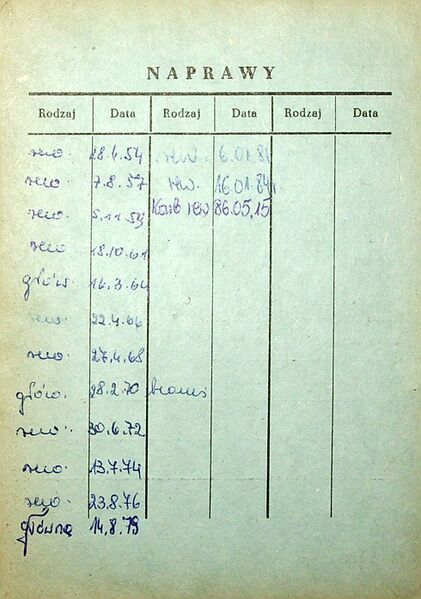 NAPRAWY
Rodzaj Data Rodzaj Data Rodzaj Data
rew. 28.4.54 rew. 6.01.81
rew. 7.8.57 rew. 16.01.84r.
rew. 5.11.59 Kons rew 86.05.15
rew. 18.10.61
głów. 16.3.64
rew. 22.4.66
rew. 27.4.68
głów. 28.2.70
rew. 30.6.72
rew. 13.7.74
rew. 23.8.76
główna 14.8.79